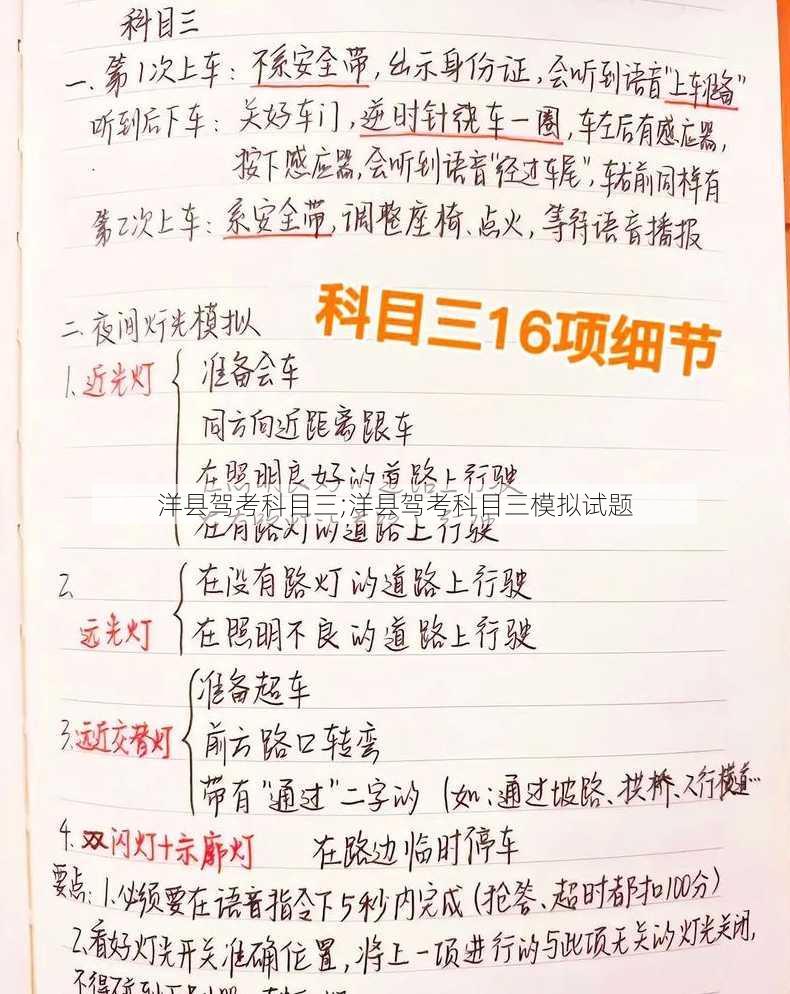 科目三
一. 第1次上车：不系安全带，出示身份证，会听到语音"上车准备"
听到后下车：关好车门，逆时针绕车一圈，车左后有感应器，
按下感应器，会听到语音"经过车尾"，车右前同样有
第2次上车：系安全带，调整座椅、点火，等待语音播报
科目三16项细节
二.夜间灯光模拟
1.近光灯 准备会车
同方向近距离跟车
在照明良好的道路上行驶
洋县驾考科目三;洋县驾考科目三模拟试题
在有路灯的道路上行驶
2. 在没有路灯的道路上行驶
远光灯 在照明不良的道路上行驶
准备超车
3.远近交替灯 前方路口转弯
带有"通过"二字的（如：通过坡路、拱桥、人行横道…
4.双闪灯+示廓灯 在路边临时停车
要点：1.必须要在语音指令下5秒内完成（抢答、超时都扣100分）
2.看好灯光开关准确位置，将上一项进行的与此项无关的灯光关闭，
不得